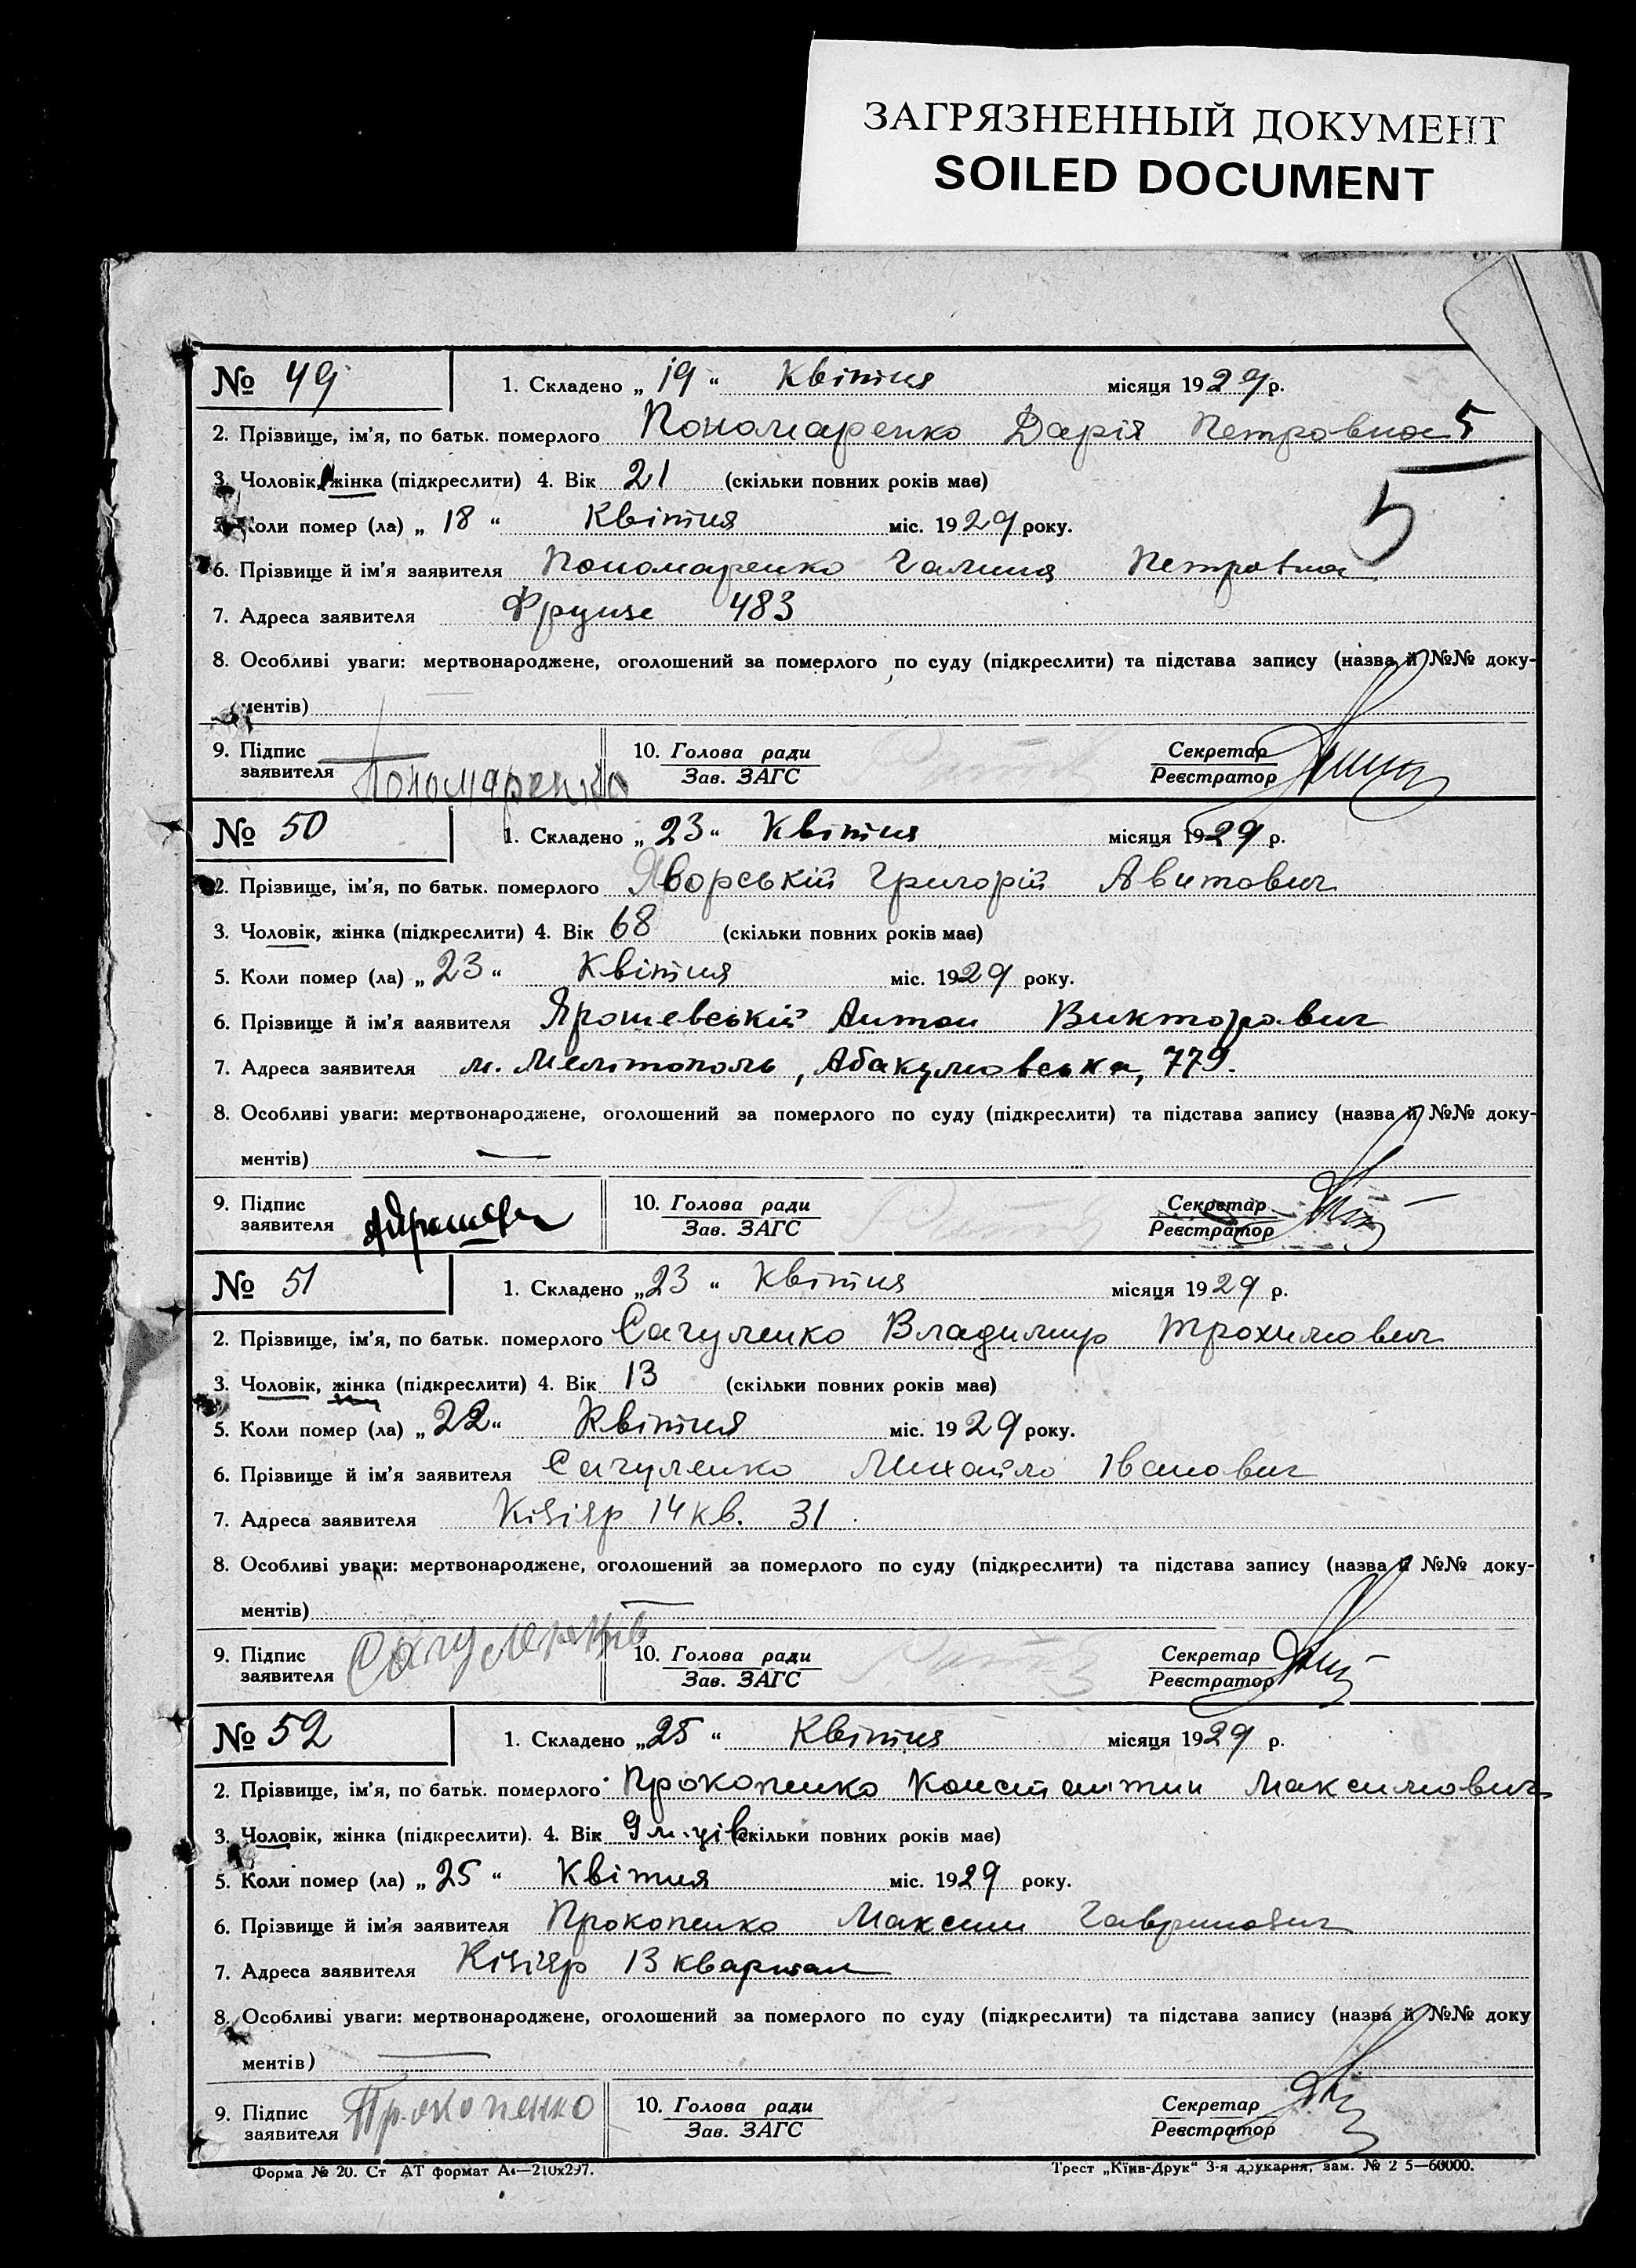 ЗАГРЯЗНЕННЫЙ ДОКУМЕНТ
SOILED DOCUMENT
№ 49 1. Складено „ 19 “ Квітня місяця 1929 р.
2. Прізвище, ім'я, по батьк. померлого Пономаренко Дарія Петровна 5
3. Чоловік, жінка (підкреслити) 4. Вік 21 (скільки повних років має) 5
5. Коли помер (ла) „ 18 “ Квітня міс. 1929 року.
6. Прізвище й ім'я заявителя Пономаренко Галина Петровна
7. Адреса заявителя Фрунзе 483
8. Особливі уваги: мертвонароджене, оголошений за померлого по суду (підкреслити) та підстава запису (назва й №№ доку-
ментів)
9. Підпис заявителя Пономаренко 10. Голова ради Зав. ЗАГС Секретар Реєстратор
№ 50 1. Складено „ 23 “ Квітня місяця 1929 р.
2. Прізвище, ім'я, по батьк. померлого Яворській Григорій Авитович
3. Чоловік, жінка (підкреслити) 4. Вік 68 (скільки повних років має)
5. Коли помер (ла) „ 23 “ Квітня міс. 1929 року.
6. Прізвище й ім'я заявителя Ярошевській Антон Викторович
7. Адреса заявителя м. Мелітополь, Абакумовська, 779.
8. Особливі уваги: мертвонароджене, оголошений за померлого по суду (підкреслити) та підстава запису (назва й №№ доку-
ментів) —
9. Підпис заявителя 10. Голова ради Зав. ЗАГС Секретар Реєстратор
№ 51 1. Складено „ 23 “ Квітня місяця 1929 р.
2. Прізвище, ім'я, по батьк. померлого Сагуленко Владимир Трохимович
3. Чоловік, жінка (підкреслити) 4. Вік 13 (скільки повних років має)
5. Коли помер (ла) „ 22 “ Квітня міс. 1929 року.
6. Прізвище й ім'я заявителя Сагуленко Михайло Іванович
7. Адреса заявителя Кізіяр 14 кв. 31
8. Особливі уваги: мертвонароджене, оголошений за померлого по суду (підкреслити) та підстава запису (назва й №№ доку-
ментів) —
9. Підпис заявителя 10. Голова ради Зав. ЗАГС Секретар Реєстратор
№ 52 1. Складено „ 25 “ Квітня місяця 1929 р.
2. Прізвище, ім'я, по батьк. померлого Прокопенко Константин Максимович
3. Чоловік, жінка (підкреслити). 4. Вік 9 м-ців (скільки повних років має)
5. Коли помер (ла) „ 25 “ Квітня міс. 1929 року.
6. Прізвище й ім'я заявителя Прокопенко Максим Гаврилович
7. Адреса заявителя Кізіяр 13 квартал
8. Особливі уваги: мертвонароджене, оголошений за померлого по суду (підкреслити) та підстава запису (назва й №№ доку
ментів) —
9. Підпис заявителя Прокопенко 10. Голова ради Зав. ЗАГС Секретар Реєстратор
Форма № 20. Ст АТ формат А4—210x297. Трест „Київ-Друк“ 3-я друкарня, зам. № 2 5—60000.